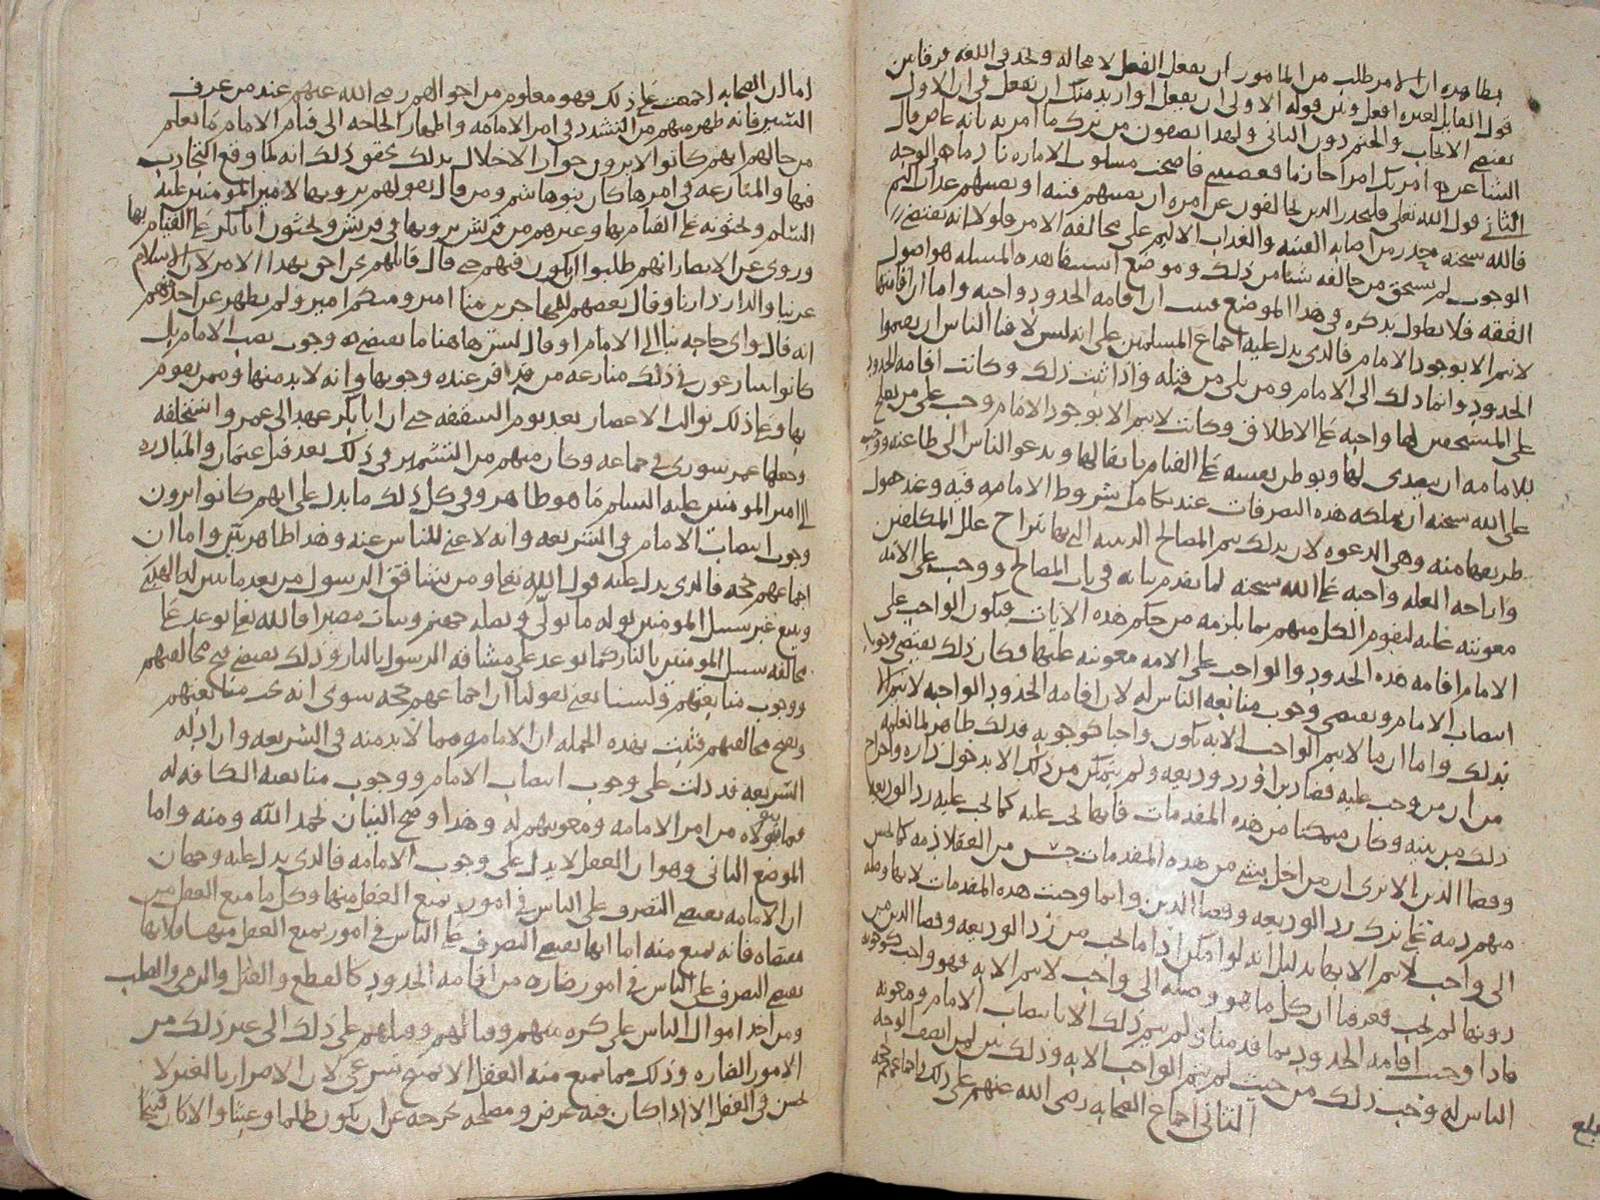 بظاهره ان الامر طلب من المامور ان يفعل الفعل لا محاله ولا نجد في اللغه فرقا بين
قول القايل لغيره افعل وبين قوله الاولى ان يفعل او اريد منك ان تفعل في ان الاول
يقتضي الايجاب والحتم دون الثاني ولهذا يصفون من ترك ما امر به بانه عاص قال
الشاعر امرتك امرا جازما فعصيتني فاصبحت مسلوب الاماره نادما هو الوجه
الثاني قول الله تعلى فليحذر الذين يخالفون عن امره ان تصيبهم فتنه او يصيبهم عذاب اليم
فالله سبحنه حذر من اصابه الفتنه والعذاب الاليم على مخالفه الامر فلولا انه يقتضي
الوجوب لم يستحق من خالفه شيا من ذلك وموضع استيفا هذه المسله هو اصول
الفقه فلا نطول بذكره في هذا الموضع فثبت ان اقامه الحدود واجبه واما ان اقامتها
لا تتم الا بوجود الامام فالذي يدل عليه اجماع المسلمين على انه ليس لافنا الناس ان يقيموا
الحدود وانما ذلك الى الامام ومن يلي من قبله واذا ثبت ذلك وكانت اقامه الحدود
على المستحقين لها واجبه على الاطلاق وكانت لا تتم الا بوجود الامام وجب على من يصلح
للامامه ان يتصدى لها ويوطن نفسه على القيام باثقالها ويدعو الناس الى طاعته ووجب
على الله سبحنه ان يملكه هذه التصرفات عند تكامل شروط الامامه فيه وعند حصول
طريقها منه وهي الدعوه لان بذلك تتم المصالح الدينيه التي بها تنزاح علل المكلفين
وازاحه العله واجبه على الله سبحنه لما تقدم بيانه في باب المصالح ووجب على الامه
معونته عليه ليقوم الكل منهم بما يلزمه من حكم هذه الايات فيكون الواجب على
الامام اقامه هذه الحدود والواجب على الامه معونته عليها فكان ذلك يقتضي وجوب
انتصاب الامام ويقتضي وجوب متابعه الناس له لان اقامه الحدود الواجبه لا تتم الا
بذلك واما ان ما لا يتم الواجب الا به يكون واجبا كوجوبه فذلك ظاهر لما نعلمه
من ان من وجب عليه قضا دين او رد وديعه ولم يتمكن من ذلك الا بدخول داره واخراج
ذلك من بيته وكان متمكنا من هذه المقدمات فانها تجب عليه كما تجب عليه رد الوديعه
وقضا الدين الا ترى ان من اخل بشي من هذه المقدمات حسن من العقلا ذمه كما يحسن
منهم ذمه على ترك رد الوديعه وقضا الدين وانما وجبت هذه المقدمات لانها وصله
الى واجب لا يتم الا بها بدليل انه لو امكن اداما يجب من رد الوديعه وقضا الدين من
دونها لم تجب فعرفنا ان كل ما هو وصله الى واجب لا يتم الا به فهو واجب كوجوبه
فاذا وجبت اقامه الحدود بما قدمناه ولم يتم ذلك الا بانتصاب الامام ومعونه
الناس له وجب ذلك من حيث لم يتم الواجب الا به وذلك بين لمن انصف الوجه
الثاني اجماع الصحابه رضي الله عنهم على ذلك واجماعهم حجه
بلغ
اما ان الصحابه اجمعت على ذلك فهو معلوم من احوالهم رضي الله عنهم عند من عرف
السير فانه ظهر منهم من التشدد في امر الامامه واظهار الحاجه الى قيام الامام ما يعلم
من حالهم انهم كانوا لا يرون جواز الاخلال بذلك يحقق ذلك انه لما وقع التجاذب
فيها والمنازعه في امرها كان بنو هاشم ومن قال بقولهم يرونها لامير المومنين عليه
السلم ويحثونه على القيام بها وغيرهم من قريش يرونها في قريش ويحثون ابا بكر على القيام بها
وروي عن الانصار انهم طلبوا ان يكون فيهم حتى قال قايلهم نحن احق بهذا الامر لان الاسلام
عزبنا والدار دارنا وقال بعضهم للمهاجرين منا امير ومنكم امير ولم يظهر عن احد منهم
انه قال واي حاجه بنا الى الامام او قال ليس هاهنا ما يقتضي وجوب نصب الامام بل
كانوا يتنازعون في ذلك منازعه من قد اقر عنده وجوبها وانه لا بد منها وممن يقوم
بها وعلى ذلك توالت الاعصار بعد يوم السقيفه حتى ان ابا بكر عهد الى عمر واستخلفه
وجعلها عمر شورى في جماعه وكان منهم من التشمير في ذلك بعد قتل عثمان والمبادره
الى امير المومنين عليه السلم ما هو ظاهر وفي كل ذلك ما يدل على انهم كانوا يرون
وجوب انتصاب الامام في الشريعه وانه لا غنى للناس عنه وهذا ظاهر بين واما ان
اجماعهم حجه فالذي يدل عليه قول الله تعلى ومن يشاقق الرسول من بعد ما تبين له الهدى
ويتبع غير سبيل المومنين نوله ما تولى ونصله جهنم وسات مصيرا فالله تعلى توعد على
مخالفه سبيل المومنين بالنار كما توعد على مشاقه الرسول بالنار وذلك يقتضي قبح مخالفتهم
ووجوب متابعتهم ولسنا نعني بقولنا ان اجماعهم حجه سوى انه يجب متابعتهم
وتقبح مخالفتهم فثبت بهذه الجمله ان الامامه مما لا بد منه في الشريعه وان ادله
الشريعه قد دلت على وجوب انتصاب الامام ووجوب متابعه الكافه له
فيما يتولاه من امر الامامه ومعونتهم له وهذا واضح البيان بحمد الله ومنه واما
الموضع الثاني وهو ان العقل لا يدل على وجوب الامامه فالذي يدل عليه وجهان
ان الامامه تقتضي التصرف على الناس في امور يمنع العقل منها وكل ما منع العقل من
مقتضاه فانه يمنع منه اما انها تقتضي التصرف على الناس في امور يمنع العقل منها فلانها
تقتضي التصرف على الناس في امور ضاره من اقامه الحدود كالقطع والقتل والرمي والصلب
ومن اخذ اموال الناس على كره منهم وقتالهم وقتلهم على ذلك الى غير ذلك من
الامور الضاره وذلك مما يمنع منه العقل الا بمبيح شرعي لان الاضرار بالغير لا
يحسن في العقل الا اذا كان فيه غرض ومصلحه تخرجه عن ان يكون ظلما او عبثا والا كان قبيحا